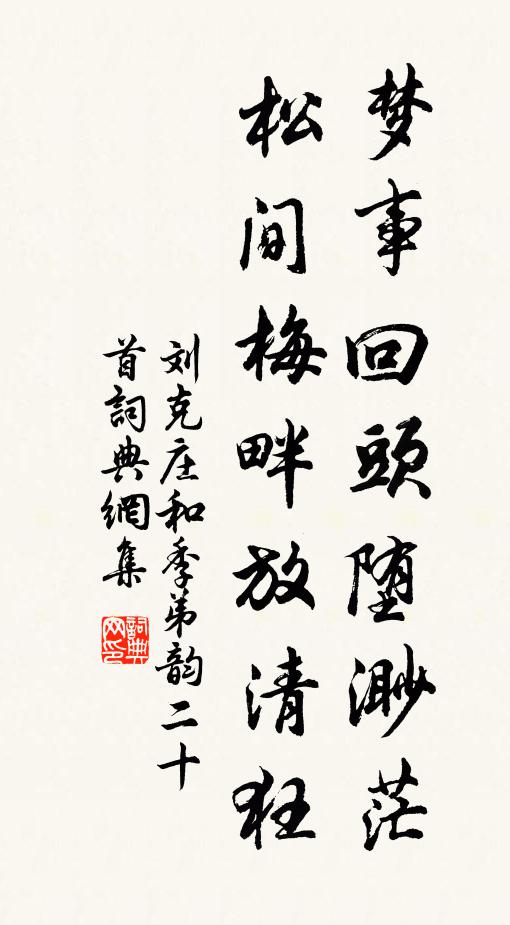 梦事回頭堕渺茫
松间梅畔放清狂
刘克庄和季弟韵二十
首詞典網集
詞典网印